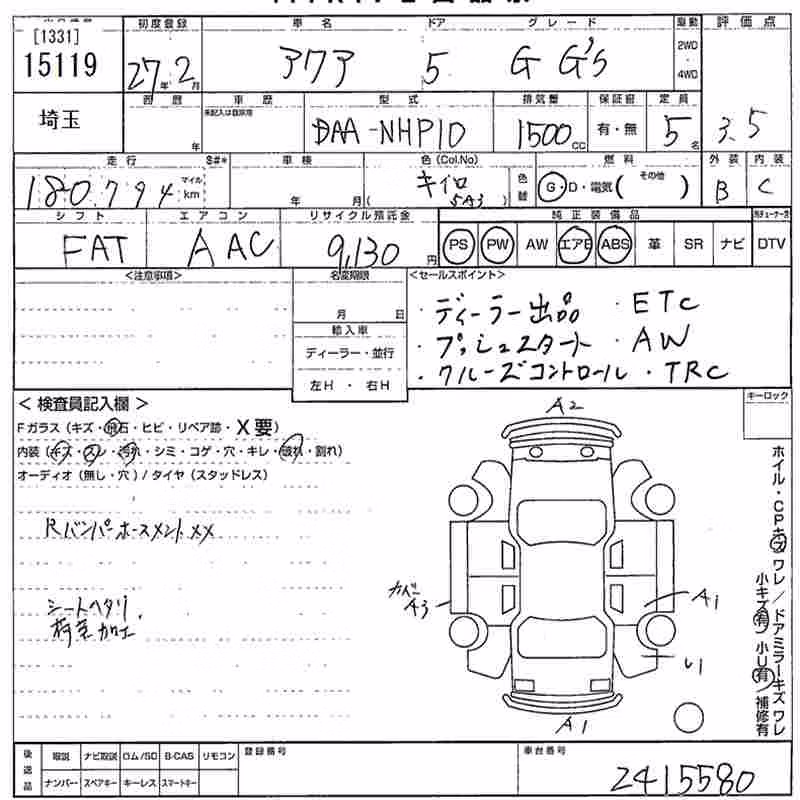 [1331]
15119
初度登録
27年 2月
車名
アクア
ドア
5
グレード
G G's
駆動
2WD
4WD
評価点
3.5
埼玉
西歴
年
車歴
未記入は自家用
型式
DAA-NHP10
排気量
1500cc
保証書
有・無
定員
5名
走行
180,794
マイル
km
S#*
車検
年 月
色 (Col.No)
キイロ
( 5A3 )
色替
燃料
G・D・電気( その他 )
外装
B
内装
C
シフト
FAT
エアコン
AAC
リサイクル預託金
9,130円
純正装備品
PS PW AW エアB ABS 革 SR ナビ
DTV
<注意事項>
名変期限
月 日
輸入車
ディーラー・並行
左H ・ 右H
<セールスポイント>
・ディーラー出品 ・ETC
・プッシュスタート ・AW
・クルーズコントロール ・TRC
キーロック
<検査員記入欄>
Fガラス (キズ・飛石・ヒビ・リペア跡・X要)
内装 (キズ・スレ・汚れ・シミ・コゲ・穴・キレ・破れ・割れ)
オーディオ (無し・穴) / タイヤ (スタッドレス)
RバンパーホースメントXX
シートヘタリ
荷室カロエ
A2
A3
A1
U1
A1
ホイル・CPキズ ワレ / ドアミラーキズ ワレ
小キズ有 / 小U有 / 補修有
後送品
取説 ナビ取説 ロム/SD B-CAS リモコン
ナンバー スペアキー キーレス スマートキー
登録番号
車台番号
2415580